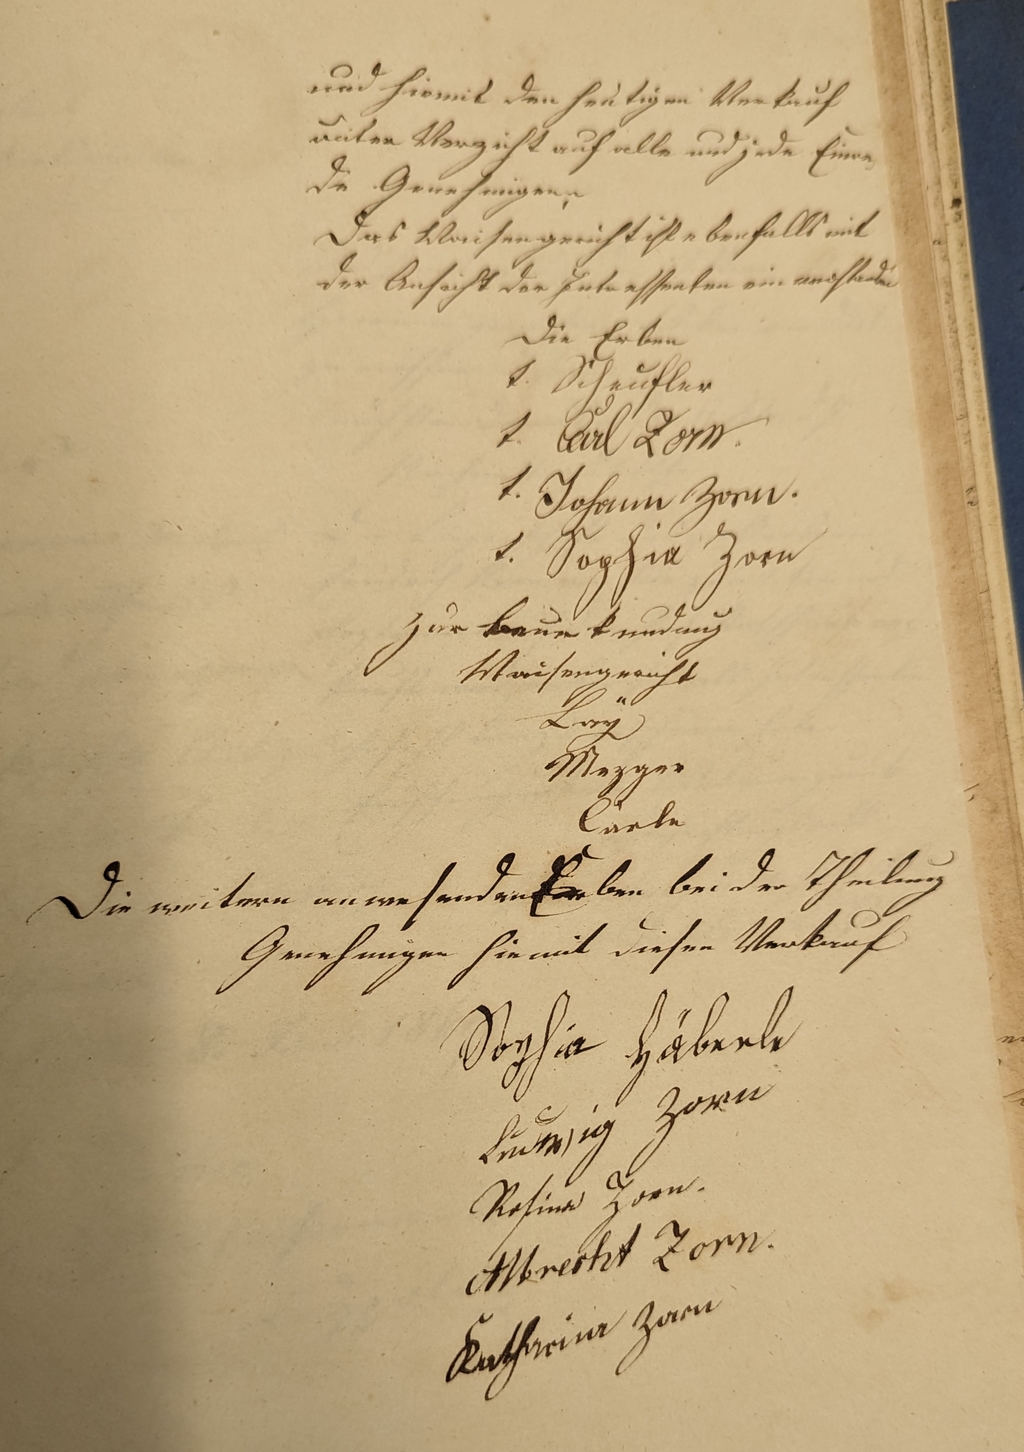 und hiermit den heutigen Verkauf
unter Verzicht auf alle und jede Einre
de Genehmigen.
Das Waisengericht ist ebenfalls mit
der Ansicht der Interessenten einverstanden
Die Erben
t. Scheufler
t. Carl Zorn.
t. Johann Zorn.
t. Sophia Zorn
Zur Beurkundung
Waisengericht
Laÿ
Mezger
Die weitern anwesenden Erben bei der Theilung
Genehmigen hiemit diesen Verkauf
Sophia Häberle
Ludwig Zorn
Rosina Zorn.
Albrecht Zorn.
Katharina Zorn